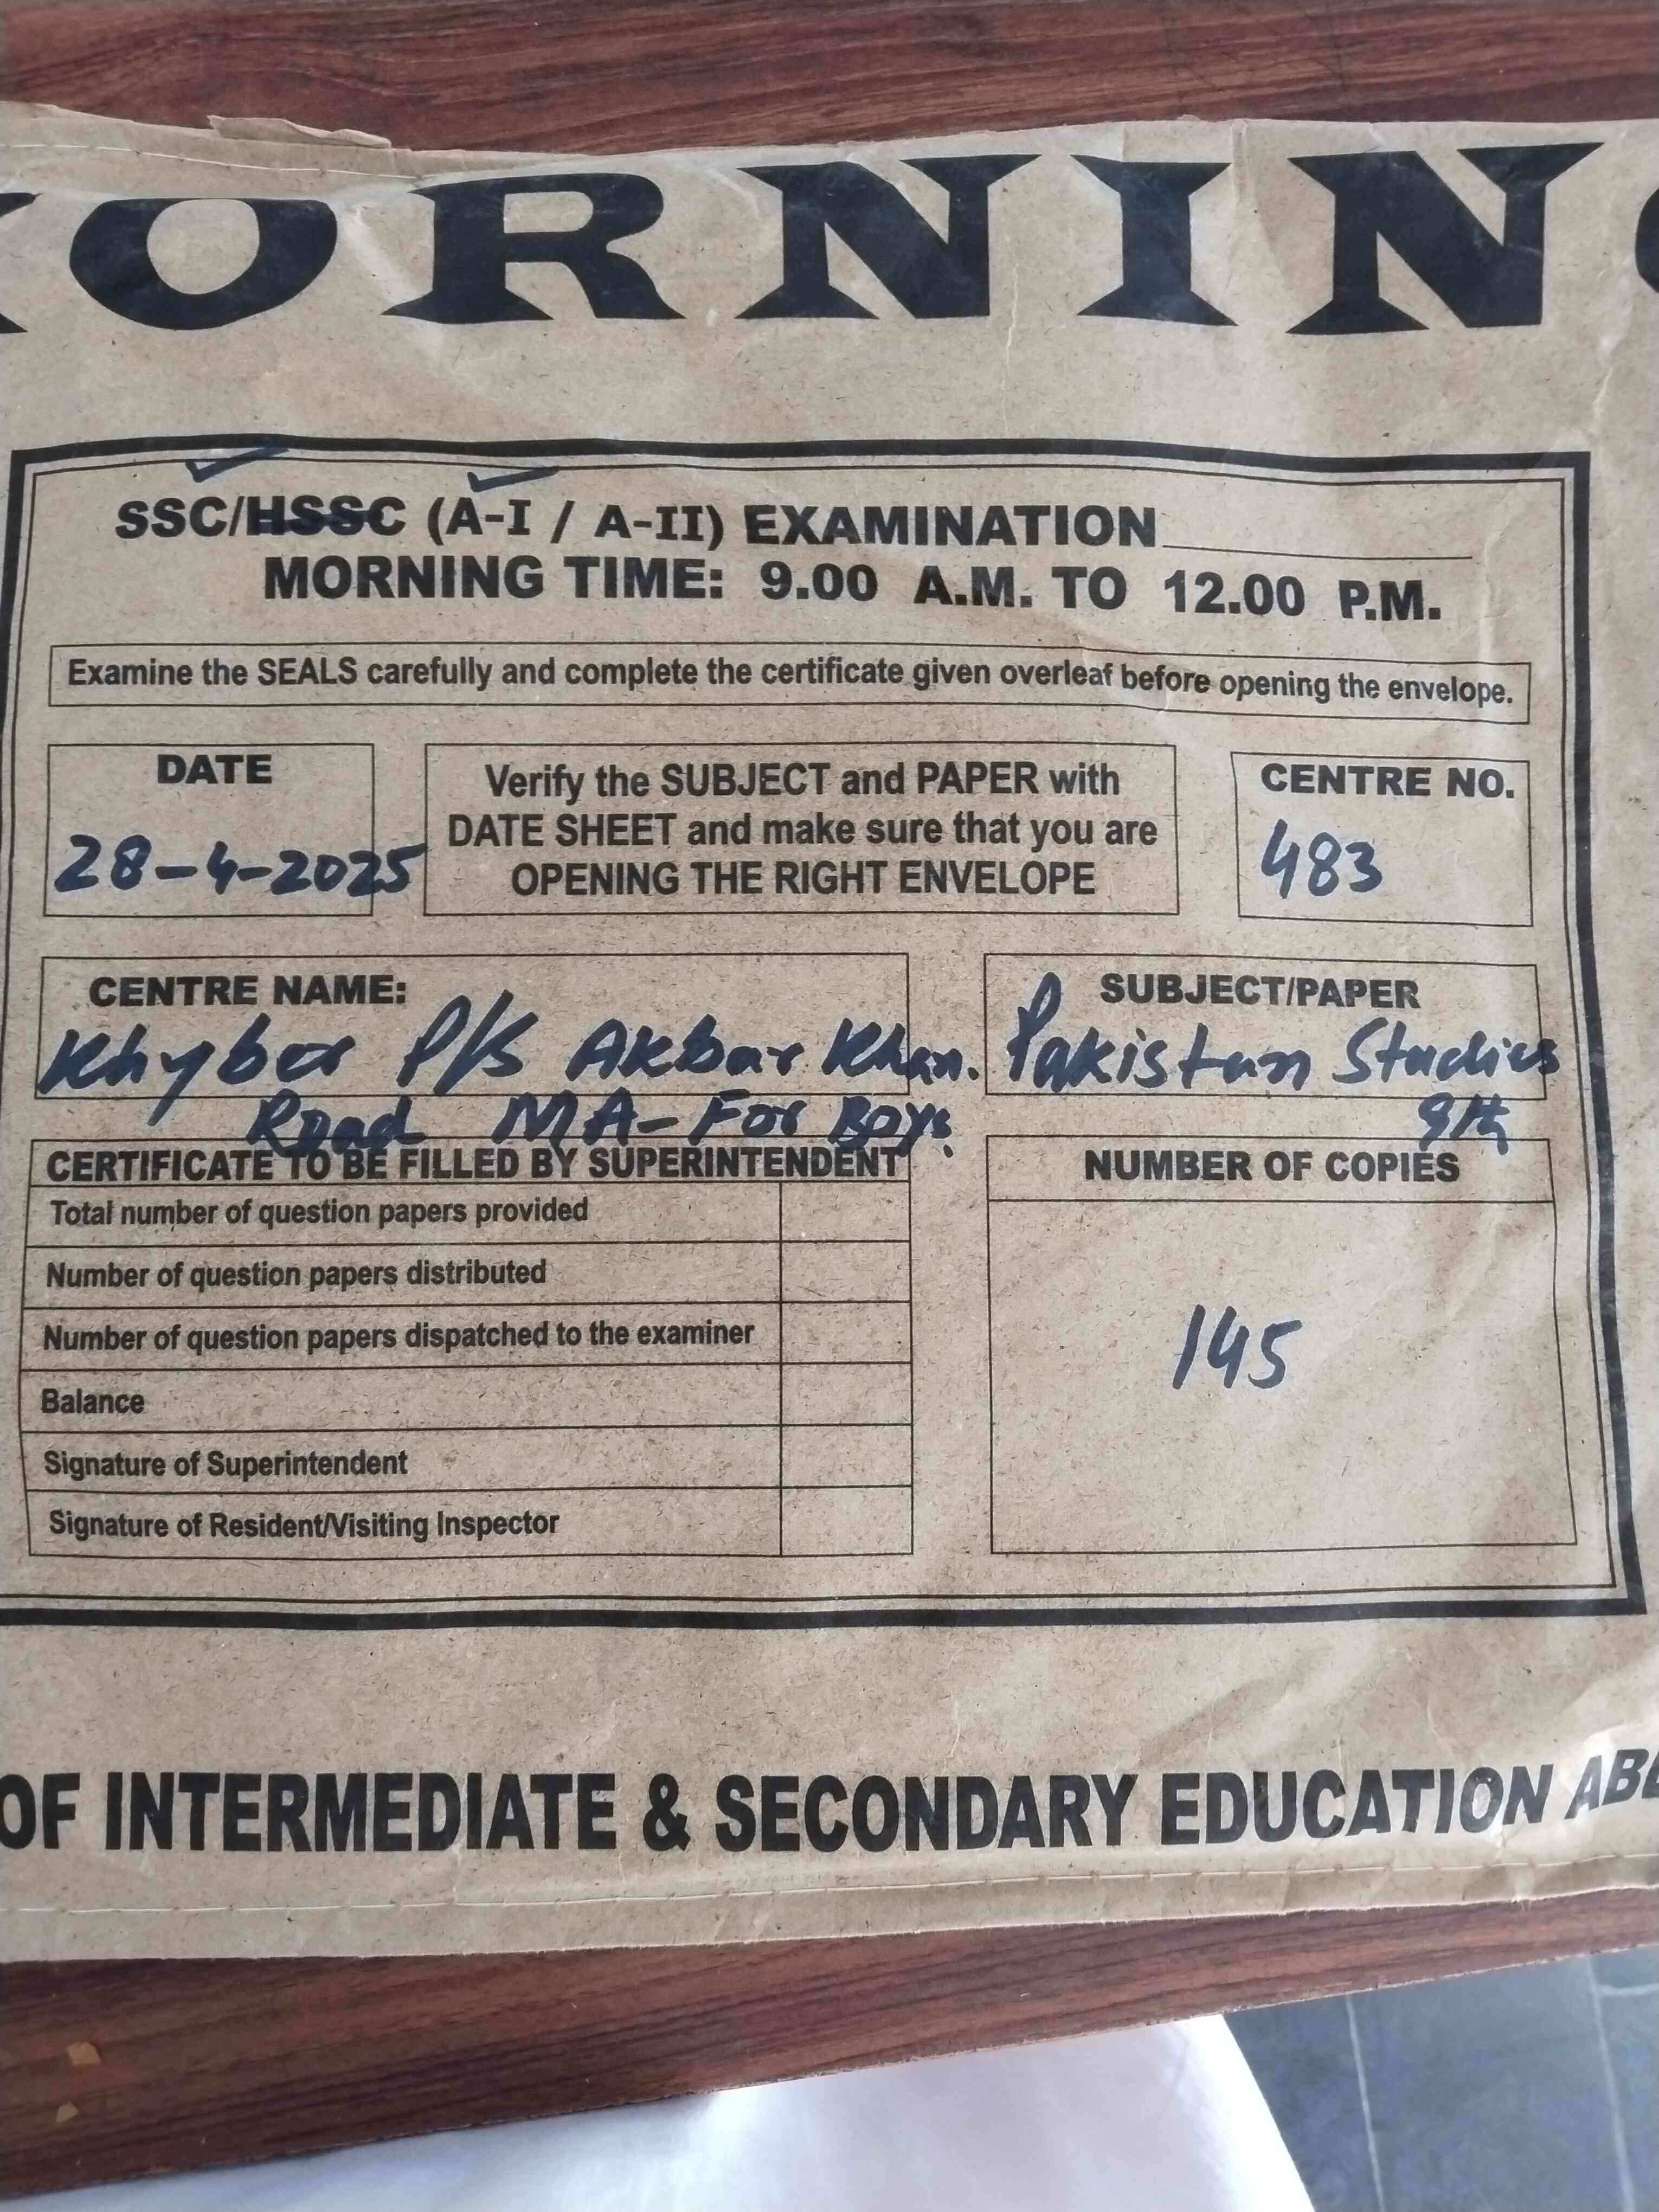 MORNING
SSC/HSSC (A-I / A-II) EXAMINATION
MORNING TIME: 9.00 A.M. TO 12.00 P.M.
Examine the SEALS carefully and complete the certificate given overleaf before opening the envelope.
DATE
28-4-2025
Verify the SUBJECT and PAPER with
DATE SHEET and make sure that you are
OPENING THE RIGHT ENVELOPE
CENTRE NO.
483
CENTRE NAME:
Khyber P/S Akbar Khan.
Road MA-For Boys.
SUBJECT/PAPER
Pakistan Studies
9th
CERTIFICATE TO BE FILLED BY SUPERINTENDENT
Total number of question papers provided
Number of question papers distributed
Number of question papers dispatched to the examiner
Balance
Signature of Superintendent
Signature of Resident/Visiting Inspector
NUMBER OF COPIES
145
OF INTERMEDIATE & SECONDARY EDUCATION